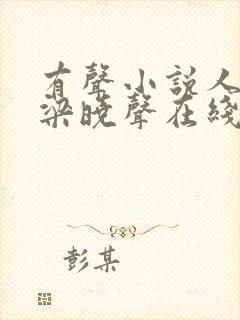 有聲小説人
梁曉聲在綫
彭某